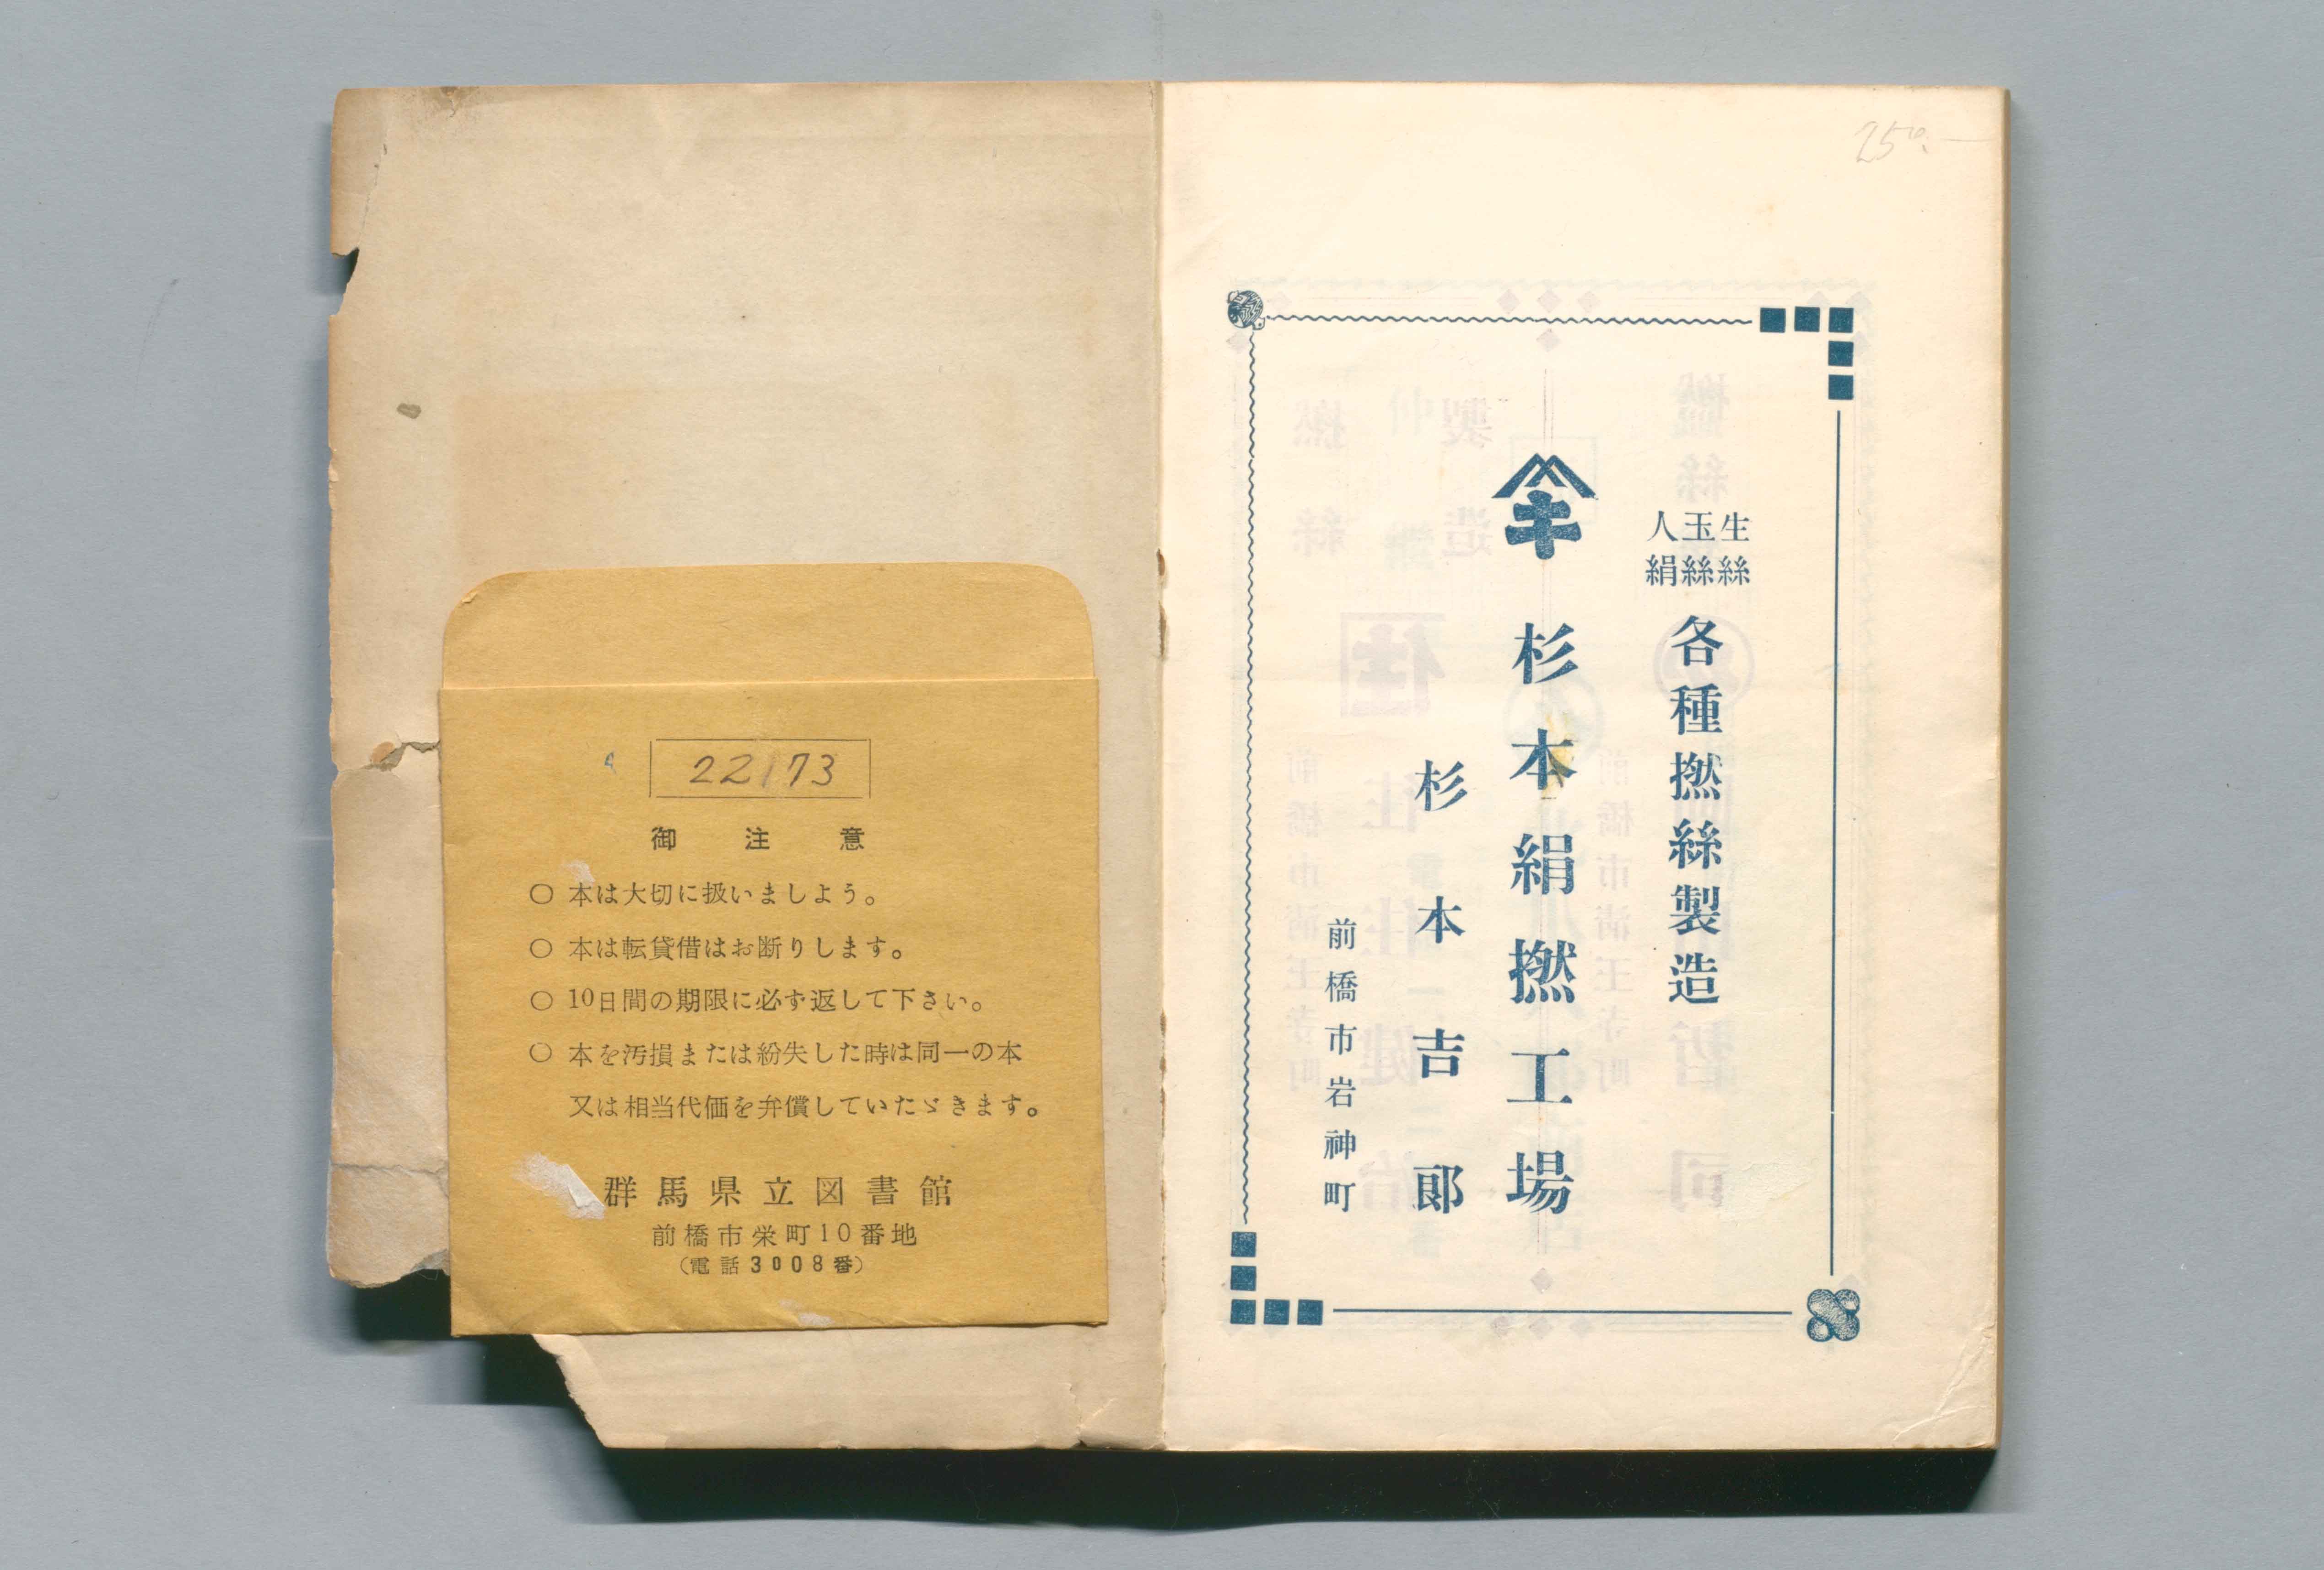 22173
御注意
○ 本は大切に扱いましよう。
○ 本は転貸借はお断りします。
○ 10日間の期限に必ず返して下さい。
○ 本を汚損または紛失した時は同一の本
又は相当代価を弁償していたゞきます。
群馬県立図書館
前橋市栄町10番地
(電話3008番)
250.—
生絲
玉絲
人絹
各種撚絲製造
キ
杉本絹撚工場
杉本吉郎
前橋市岩神町